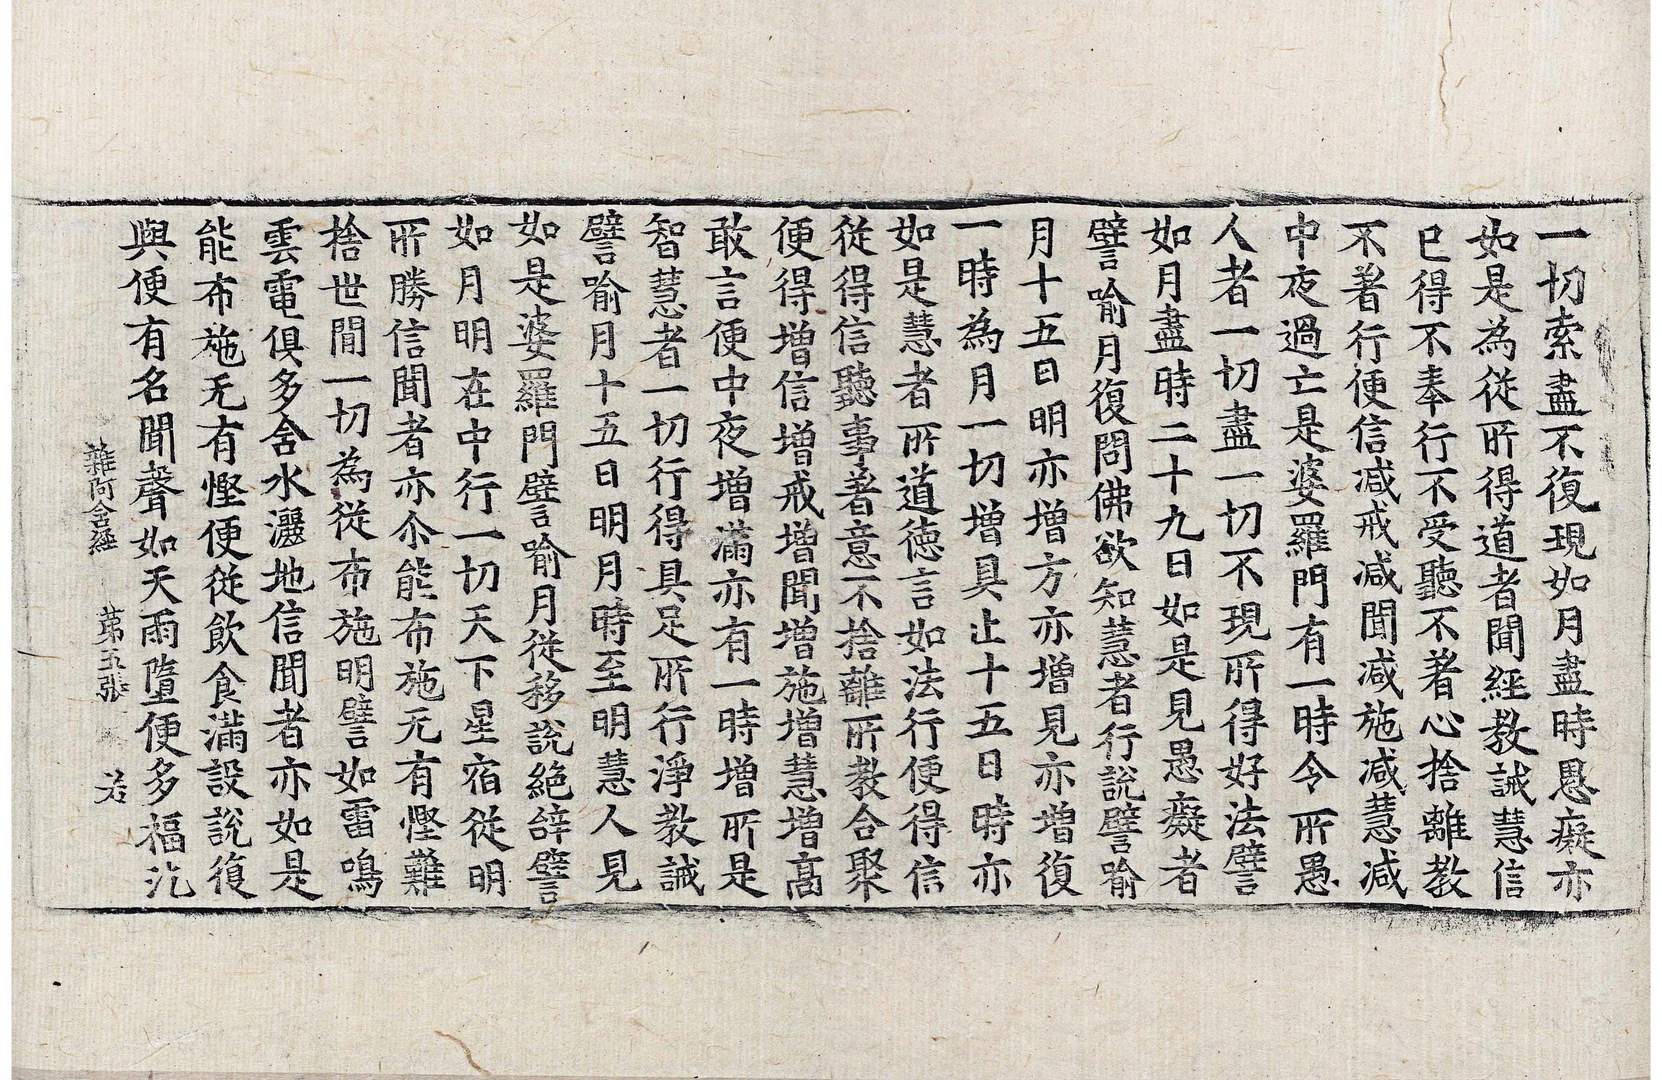 一切索盡不復現如月盡時愚癡亦
如是為從所得道者聞經教誡慧信
已得不奉行不受聽不著心捨離教
不著行便信減戒減聞減施減慧減
中夜過亡是婆羅門有一時令所愚
人者一切盡一切不現所得好法譬
如月盡時二十九日如是見愚癡者
譬喻月復問佛欲知慧者行說譬喻
月十五日明亦增方亦增見亦增復
一時為月一切增具止十五日時亦
如是慧者所道徳言如法行便得信
從得信聽事著意不捨離所教合聚
便得增信增戒增聞增施增慧增高
敢言便中夜增滿亦有一時增所是
智慧者一切行得具足所行淨教誡
譬喻月十五日明月時至明慧人見
如是婆羅門譬喻月從移說絕辭譬
如月明在中行一切天下星宿從明
所勝信聞者亦尒能布施无有慳難
捨世間一切為從布施明譬如雷鳴
雲電俱多含水灑地信聞者亦如是
能布施无有慳便從飲食滿設說復
與便有名聞聲如天雨墮便多福汔
雜阿含經 苐五張 若